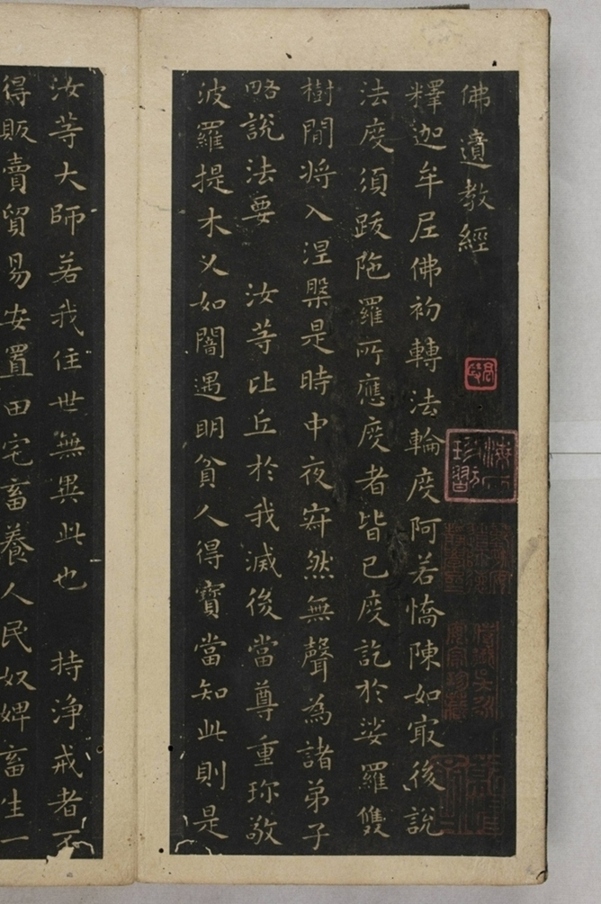 佛遺教經
釋迦牟尼佛初轉法輪度阿若憍陳如寂後説
法度須跋陁羅所應度者皆已度訖於娑羅雙
樹間将入涅槃是時中夜寂然無聲為諸弟子
略說法要 汝等比丘於我滅後當尊重珎敬
波羅提木叉如闇遇明貧人得寶當知此則是
汝等大師若我住世無異此也 持淨戒者不
得販賣貿易安置田宅畜養人民奴婢畜生一